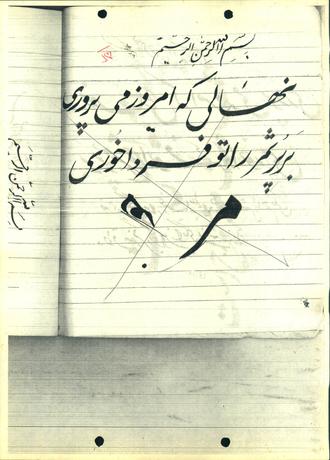 بسم الله الرحمن الرحیم
نهالی که امروز می پروری
بر و ثمر را تو فردا خوری
م
بسم الله الرحمن الرحیم